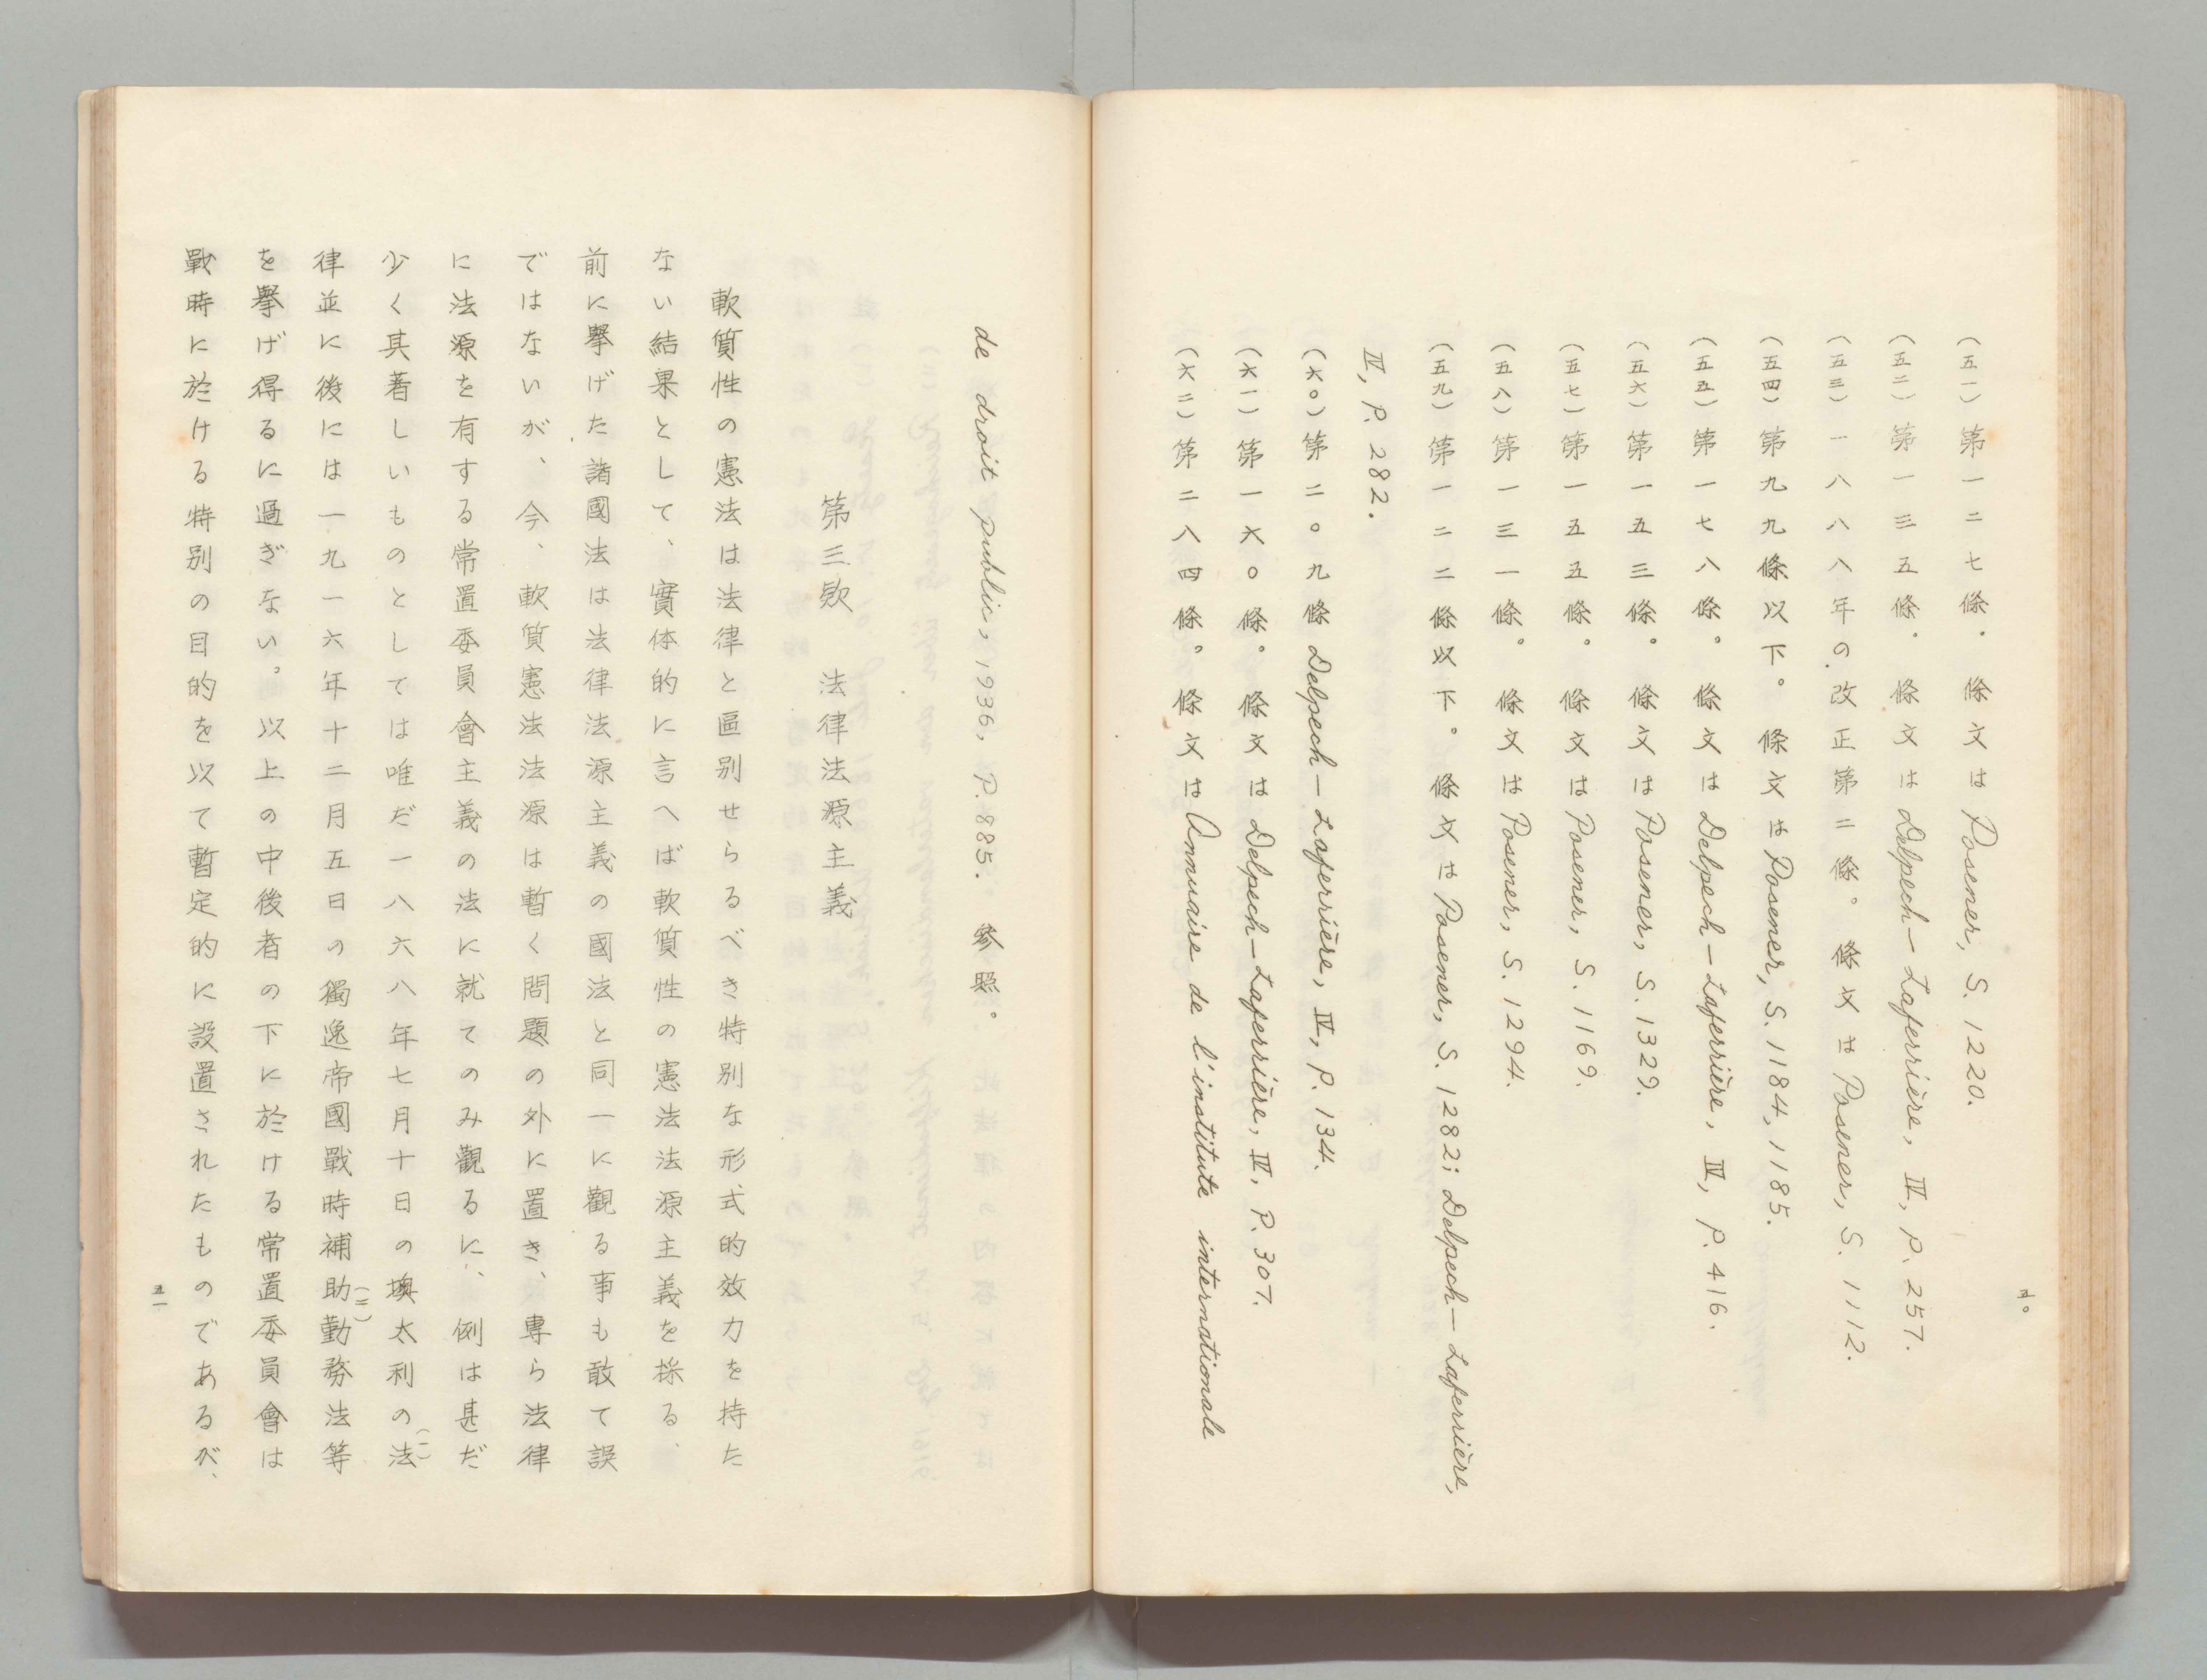 (五一)第一二七條。條文は Posener, S. 1220.
(五二)第一三五條。條文は Delpech—Laferrière, Ⅳ, P. 257.
(五三)一八八八年の改正第二條。條文は Posener, S. 1112.
(五四)第九九條以下。條文は Posener, S. 1184, 1185.
(五五)第一七八條。條文は Delpech—Laferrière, Ⅳ, P. 416.
(五六)第一五三條。條文は Posener, S. 1329.
(五七)第一五五條。條文は Posener, S. 1169.
(五八)第一三一條。條文は Posener, S. 1294.
(五九)第一二二條以下。條文は Posener, S. 1282; Delpech—Laferrière,
Ⅳ, P. 282.
(六〇)第二〇九條 Delpech—Laferrière, Ⅳ, P. 134.
(六一)第一六〇條。條文は Delpech—Laferrière, Ⅳ, P. 307.
(六二)第二八四條。條文は Annuaire de l'institute internationale
五〇
de droit public, 1936, P. 885. 參照。
第三款 法律法源主義
軟質性の憲法は法律と區別せらるべき特別な形式的效力を持た
ない結果として、實体的に言へば軟質性の憲法法源主義を採る、
前に擧げた諸國法は法律法源主義の國法と同一に觀る事も敢て誤
ではないが、今、軟質憲法法源は暫く問題の外に置き、專ら法律
に法源を有する常置委員會主義の法に就てのみ觀るに、例は甚だ
少く其著しいものとしては唯だ一八六八年七月十日の墺太利の法(一)
律並に後には一九一六年十二月五日の獨逸帝國戰時補助(二)勤務法等
を擧げ得るに過ぎない。以上の中後者の下に於ける常置委員會は
戰時に於ける特別の目的を以て暫定的に設置されたものであるが、
五一